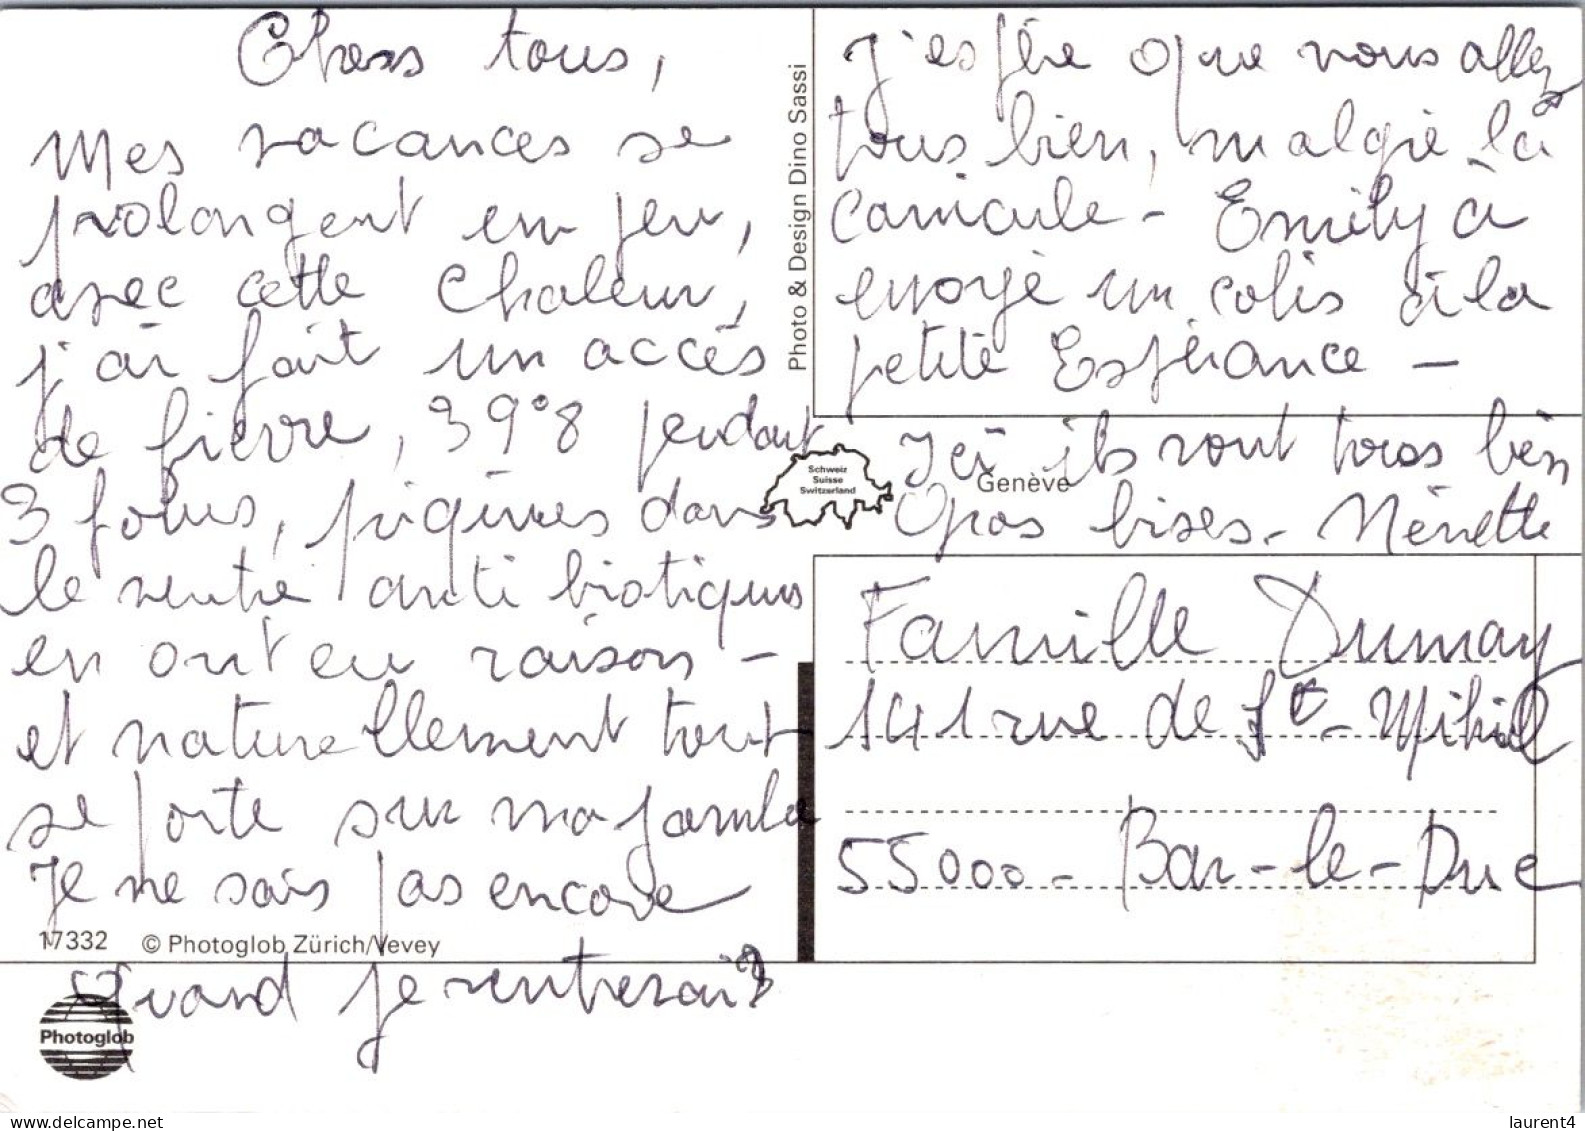 Chers tous,
Mes vacances se
prolongent un peu,
avec cette chaleur,
j'ai fait un accès
de fièvre, 39°8 pendant
3 jours, piqûres dans
le ventre anti biotiques
en ont eu raison -
et naturellement tout
se porte sur ma jambe
Je ne sais pas encore
quand je rentrerai?
17332 © Photoglob Zürich/Vevey
Photoglob
Photo & Design Dino Sassi
J'espère que vous allez
tous bien, malgré la
canicule - Emily a
envoyé un colis à la
petite Espérance -
Ici ils vont tous bien
Schweiz
Suisse
Switzerland
Genève
Gros bises - Nénette
Famille Dumay
141 rue de St - Mihiel
55000 - Bar-le-Duc
laurent4
delcampe.net